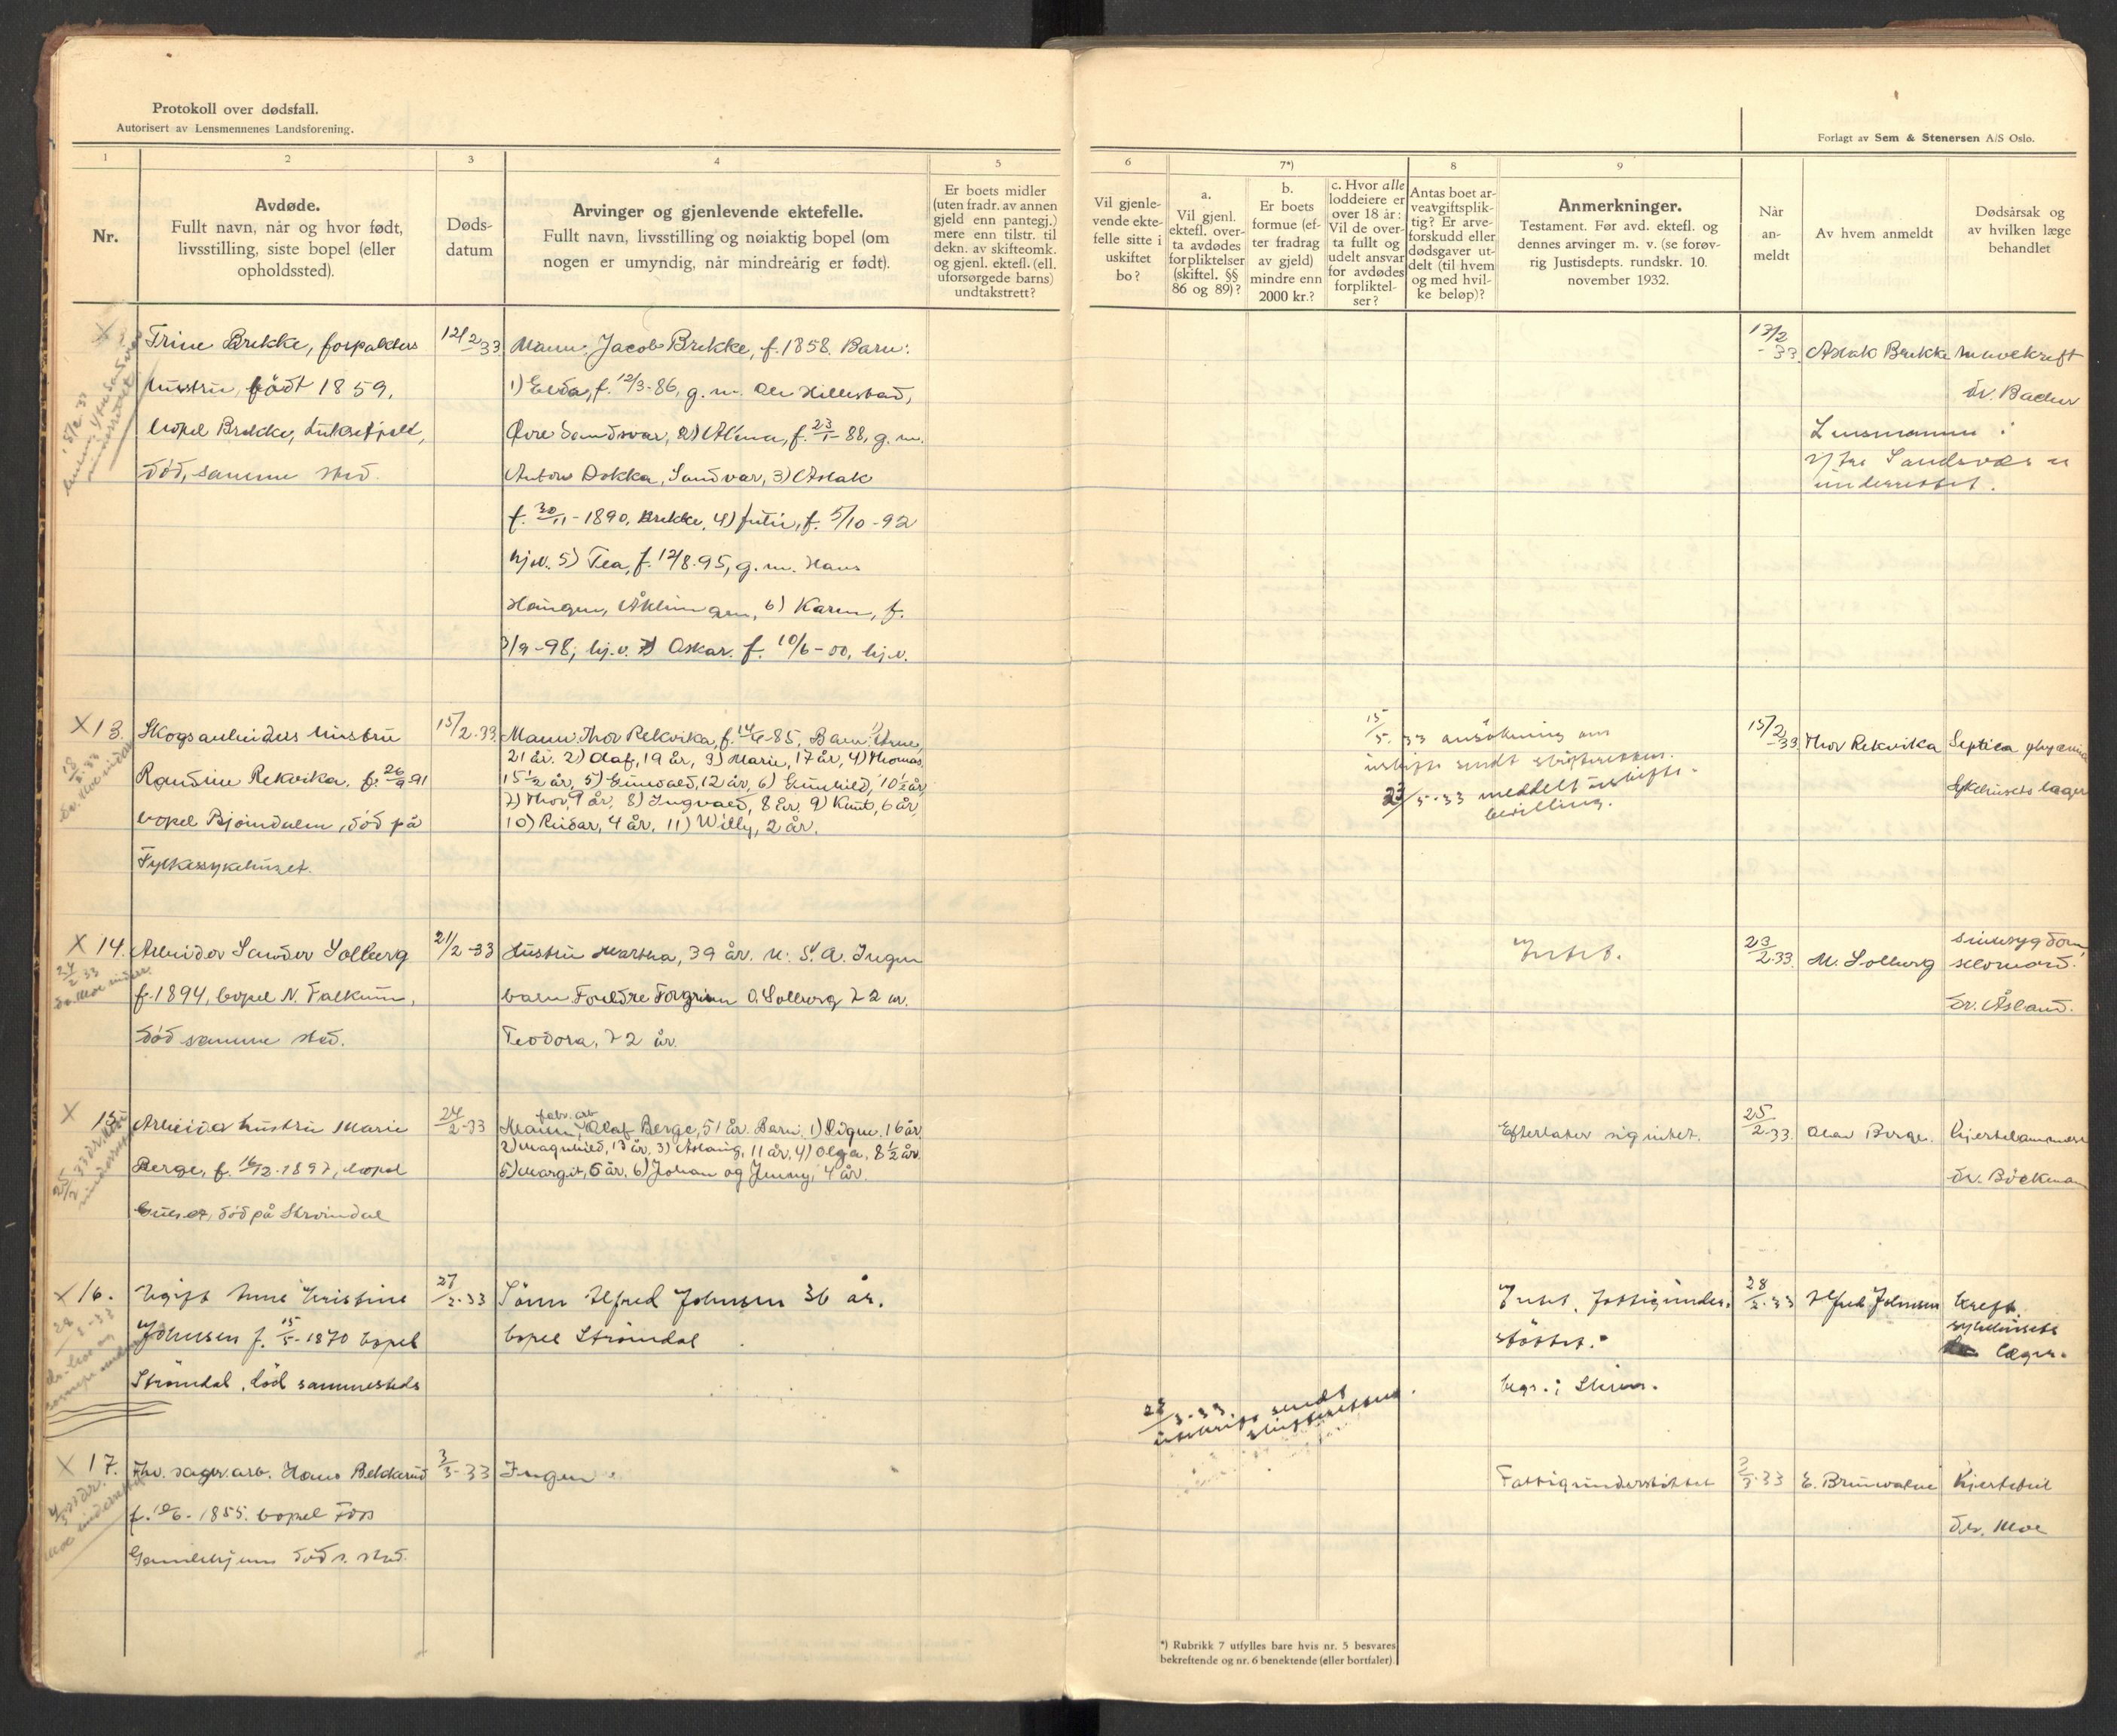 Protokoll over dødsfall.
Autorisert av Lensmennenes Landsforening.
1
2
3
4
5
Nr.
Avdøde.
Fullt navn, når og hvor født,
livsstilling, siste bopel (eller
opholdssted).
Døds-
datum
Arvinger og gjenlevende ektefelle.
Fullt navn, livsstilling og nøiaktig bopel (om
nogen er umyndig, når mindreårig er født).
Er boets midler
(uten fradr. av annen
gjeld enn pantegj.)
mere enn tilstr. til
dekn. av skifteomk.
og gjenl. ektefl. (ell.
uforsørgede barns)
undtakstrett?
Trine Brekke, forpakters
hustru, født 1859,
bopel Brekke, 
død, samme sted.
12/2 33
Mann, Jacob Brekke, f. 1858. Barn:
1) f. 12/3-86, g. m. Ole Hillestad,
Øvre Sandsvær, 2) Alma, f. 23/1-88, g. m.
Anton Dokka, Sandsvær, 3) Aslak
f. 30/11-1890, Brekke, 4) f. 5/10-92
hj.v. 5) Tea, f. 12/8.95, g. m. Hans
Haugen, 6) Karen, f.
3/9-98, hj.v. 7) Oskar. f. 10/6-00, hj.v.
X 13.
Skogsarbeiders hustru
Randine Rekvika. f. 26/9-91
bopel Bjørndalen, død på
Fylkessykehuset.
15/2.33
Mann. Thor Rekvika, f. 85, Barn: 1) Arne,
21 år. 2) Olaf, 19 år, 3) Marie, 17 år, 4) Thomas
15½ år, 5) 12 år, 6) Gunhild, 10½ år
7) Thor, 9 år, 8) Ingvald, 8 år, 9) Knut, 6 år,
10) Reidar, 4 år, 11) Willy, 2 år.
X 14.
Arbeider Sander Solberg
f. 1894, bopel N. Falkum,
død samme sted.
21/2-33
Hustru Martha, 39 år. U. S. A. Ingen
barn Foreldre Torgrim O. Solberg 72 år.
Teodora, 72 år.
X 15
Arbeider hustru Marie
Berge, f. 16/12-1897, bopel
død på Strømdal
24/2-33
fabr. arb.
Mann, Olaf Berge, 51 år. Barn, 1) Signe. 16 år
2) Magnhild, 13 år, 3) Aslaug, 11 år, 4) Olga, 8½ år.
5) Margit, 5 år. 6) Johan og Jenny, 4 år.
X 16.
Ugift Anne Kristine
Johnsen f. 15/5-1870 bopel
Strømdal, død sammesteds
27/2-33
Sønn Alfred Johnsen 36 år.
bopel Strømdal
X 17.
Fhv. sager.arb. Hans Bekkerud
f. 10/6-1855. bopel Foss
Gamlehjem død s. sted.
3/3-33
Ingen
Forlagt av Sem & Stenersen A/S Oslo.
6
7*)
8
9
Vil gjenle-
vende ekte-
felle sitte i
uskiftet
bo?
a.
Vil gjenl.
ektefl. over-
ta avdødes
forpliktelser
(skiftel. §§
86 og 89)?
b.
Er boets
formue (ef-
ter fradrag
av gjeld)
mindre enn
2000 kr.?
c. Hvor alle
loddeiere er
over 18 år:
Vil de over-
ta fullt og
udelt ansvar
for avdødes
forpliktel-
ser?
Antas boet ar-
veavgiftsplik-
tig? Er arve-
forskudd eller
dødsgaver ut-
delt (til hvem
og med hvil-
ke beløp)?
Anmerkninger.
Testament. Før avd. ektefl. og
dennes arvinger m. v. (se forøv-
rig Justisdepts. rundskr. 10.
november 1932.
Når
an-
meldt
Av hvem anmeldt
Dødsårsak og
av hvilken læge
behandlet
13/2-33.
Aslak Brekke
mavekreft
dr. Backer
Lensmannen i
Ytre Sandsvær er
underrettet.
15/5.33 ansøkning om
uskifte sendt skifteretten.
23/5-33 meddelt uskifte-
bevilling.
15/2-33
Thor Rekvika
Septica
Sykehusets læger
Intet.
23/2.33.
M. Solberg
sinnsygdom
selvmord.
dr. Åsland.
Efterlater sig intet.
25/2-33.
Olav Berge.
hjertelammelse
dr. Bøckman
Intet. fattigunder-
støttet.
begr. i Skien.
28/2-33
Alfred Johnsen
Kreft.
sykehusets
læger.
22/3-33.
utskrift sendt
skifteretten.
Fattigunderstøttet
3/3-33
E. Brunvatne
Hjertefeil
dr. Moe
*) Rubrikk 7 utfylles bare hvis nr. 5 besvares
bekreftende og nr. 6 benektende (eller bortfaler)